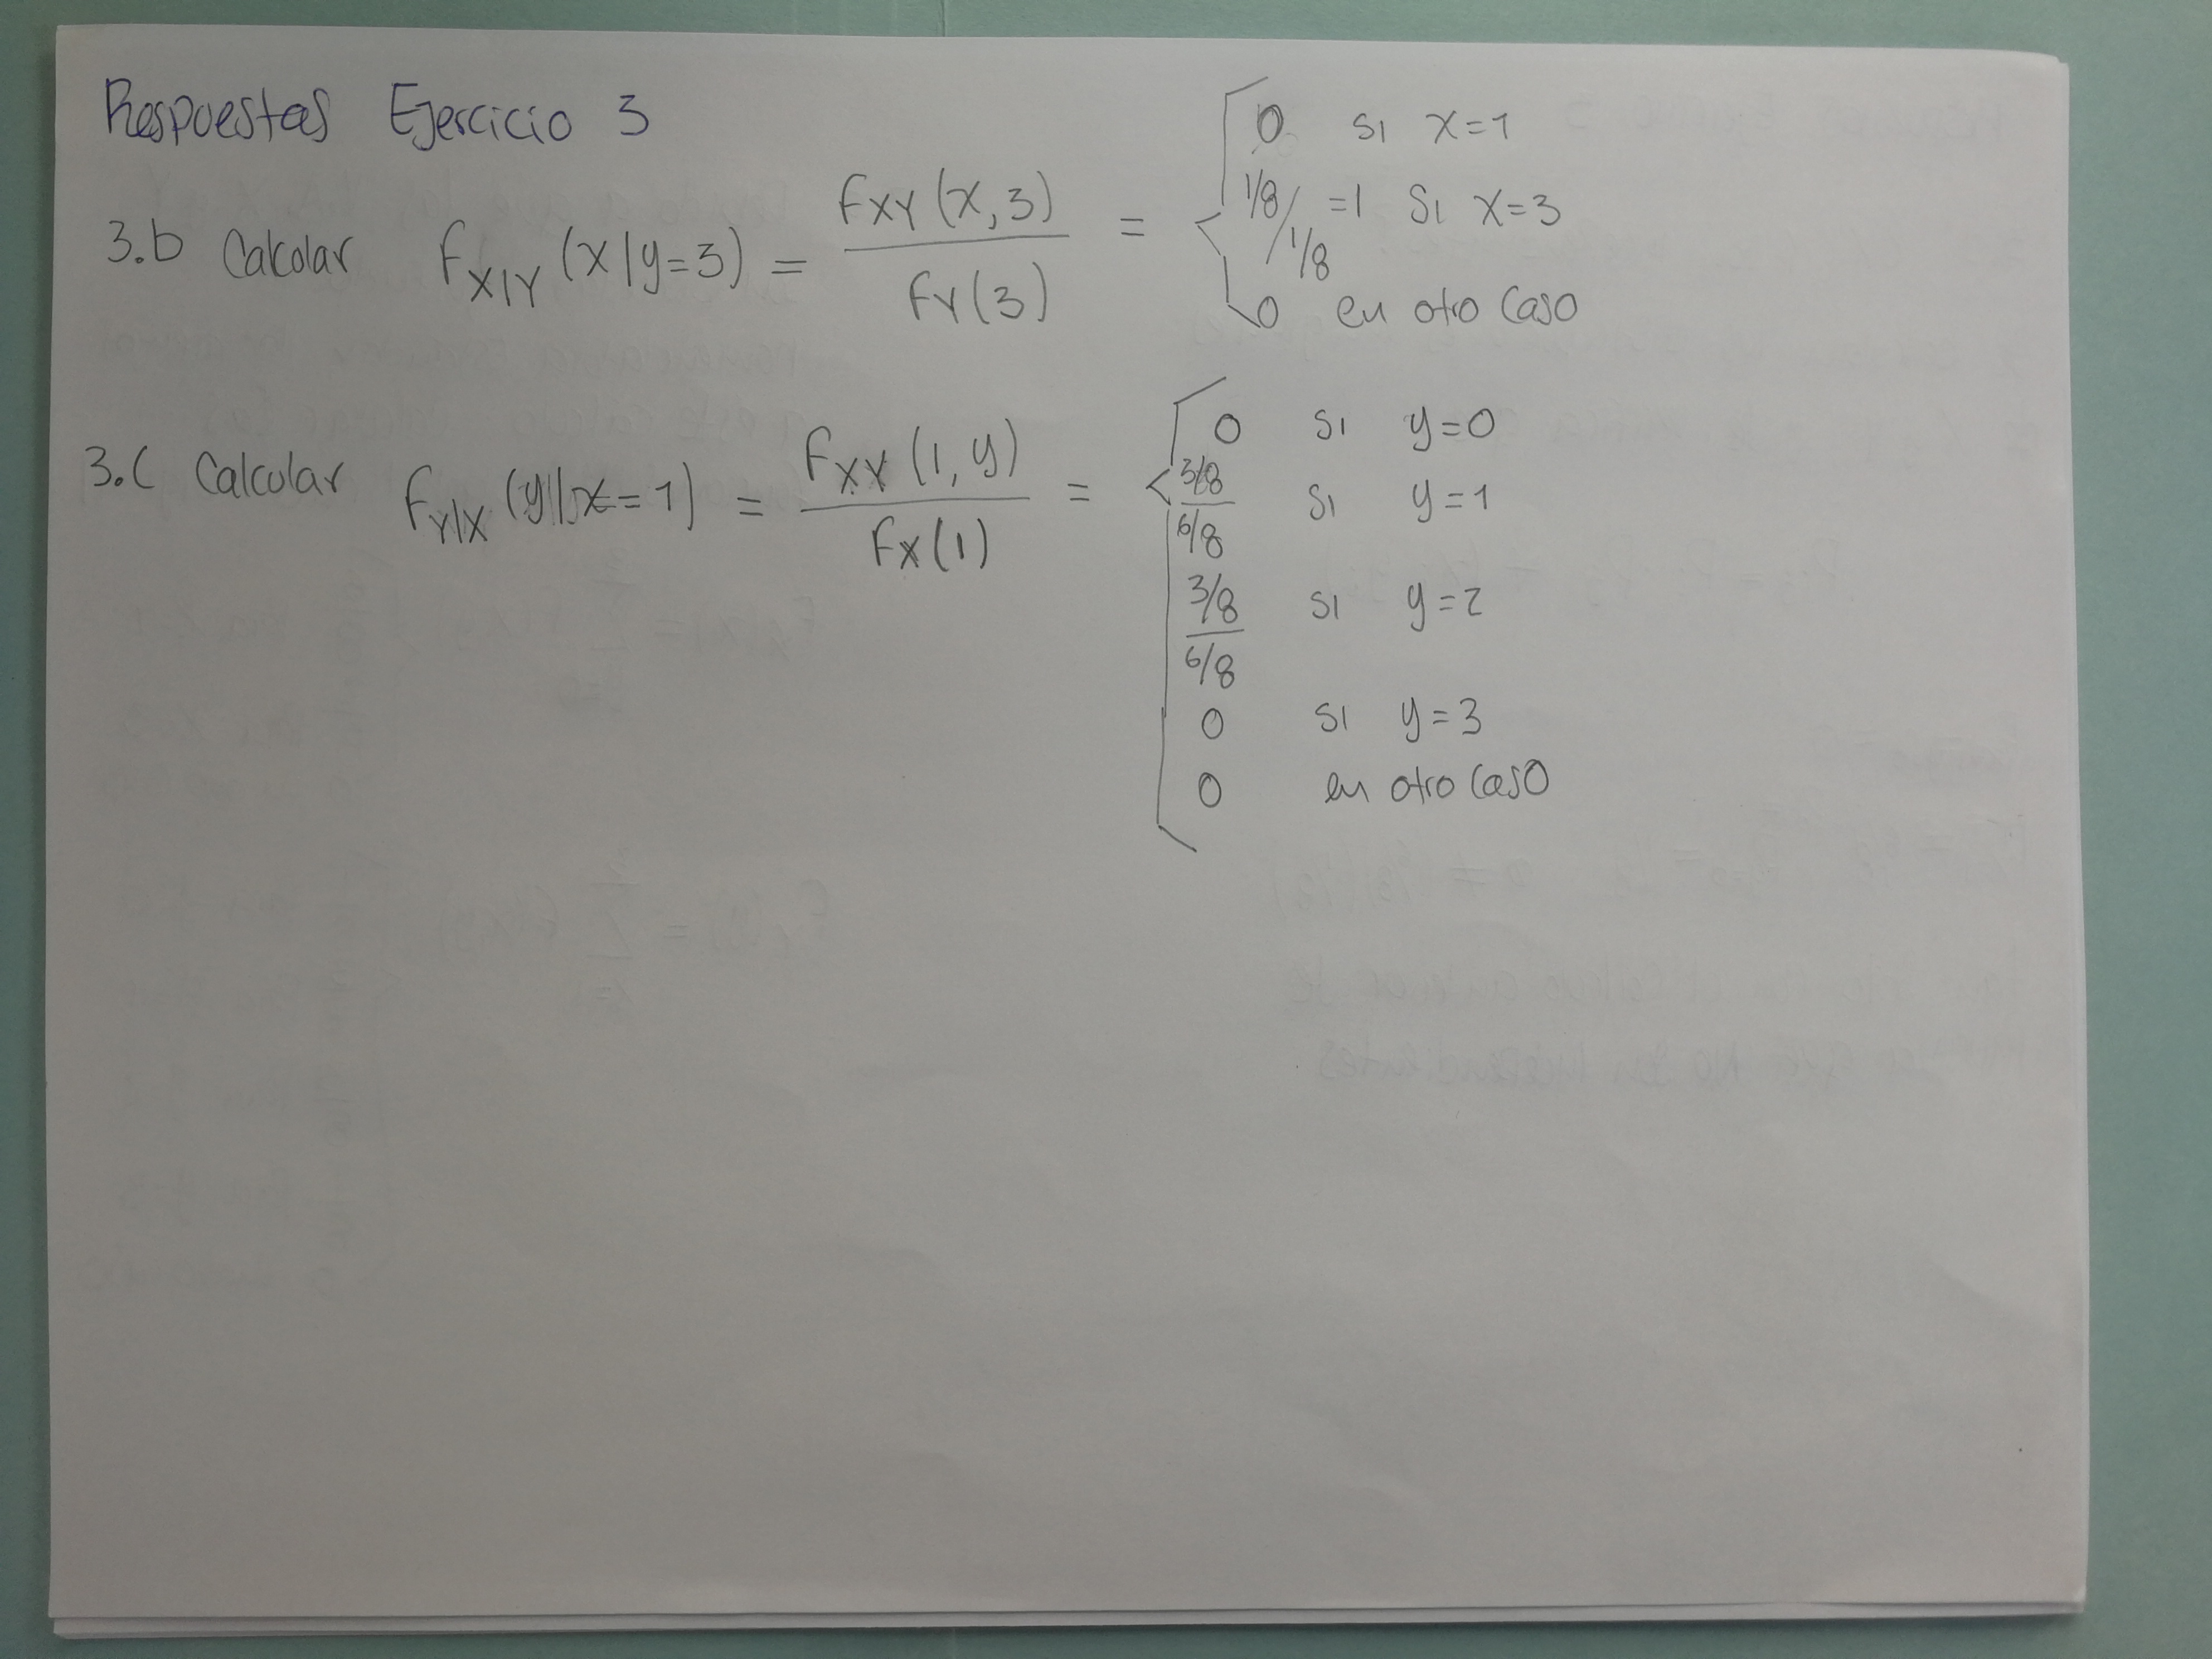 Respuestas Ejercicio 3
3.b Calcular f_{X|Y} (x|y=3) = f_{XY}(x,3) / f_Y(3) = { 0 si x=1
1/8 / 1/8 =1 si x=3
0 en otro caso
3.c Calcular f_{Y|X} (y|x=1) = f_{XY}(1,y) / f_X(1) = { 0 si y=0
3/8 / 6/8 si y=1
3/8 / 6/8 si y=2
0 si y=3
0 en otro caso